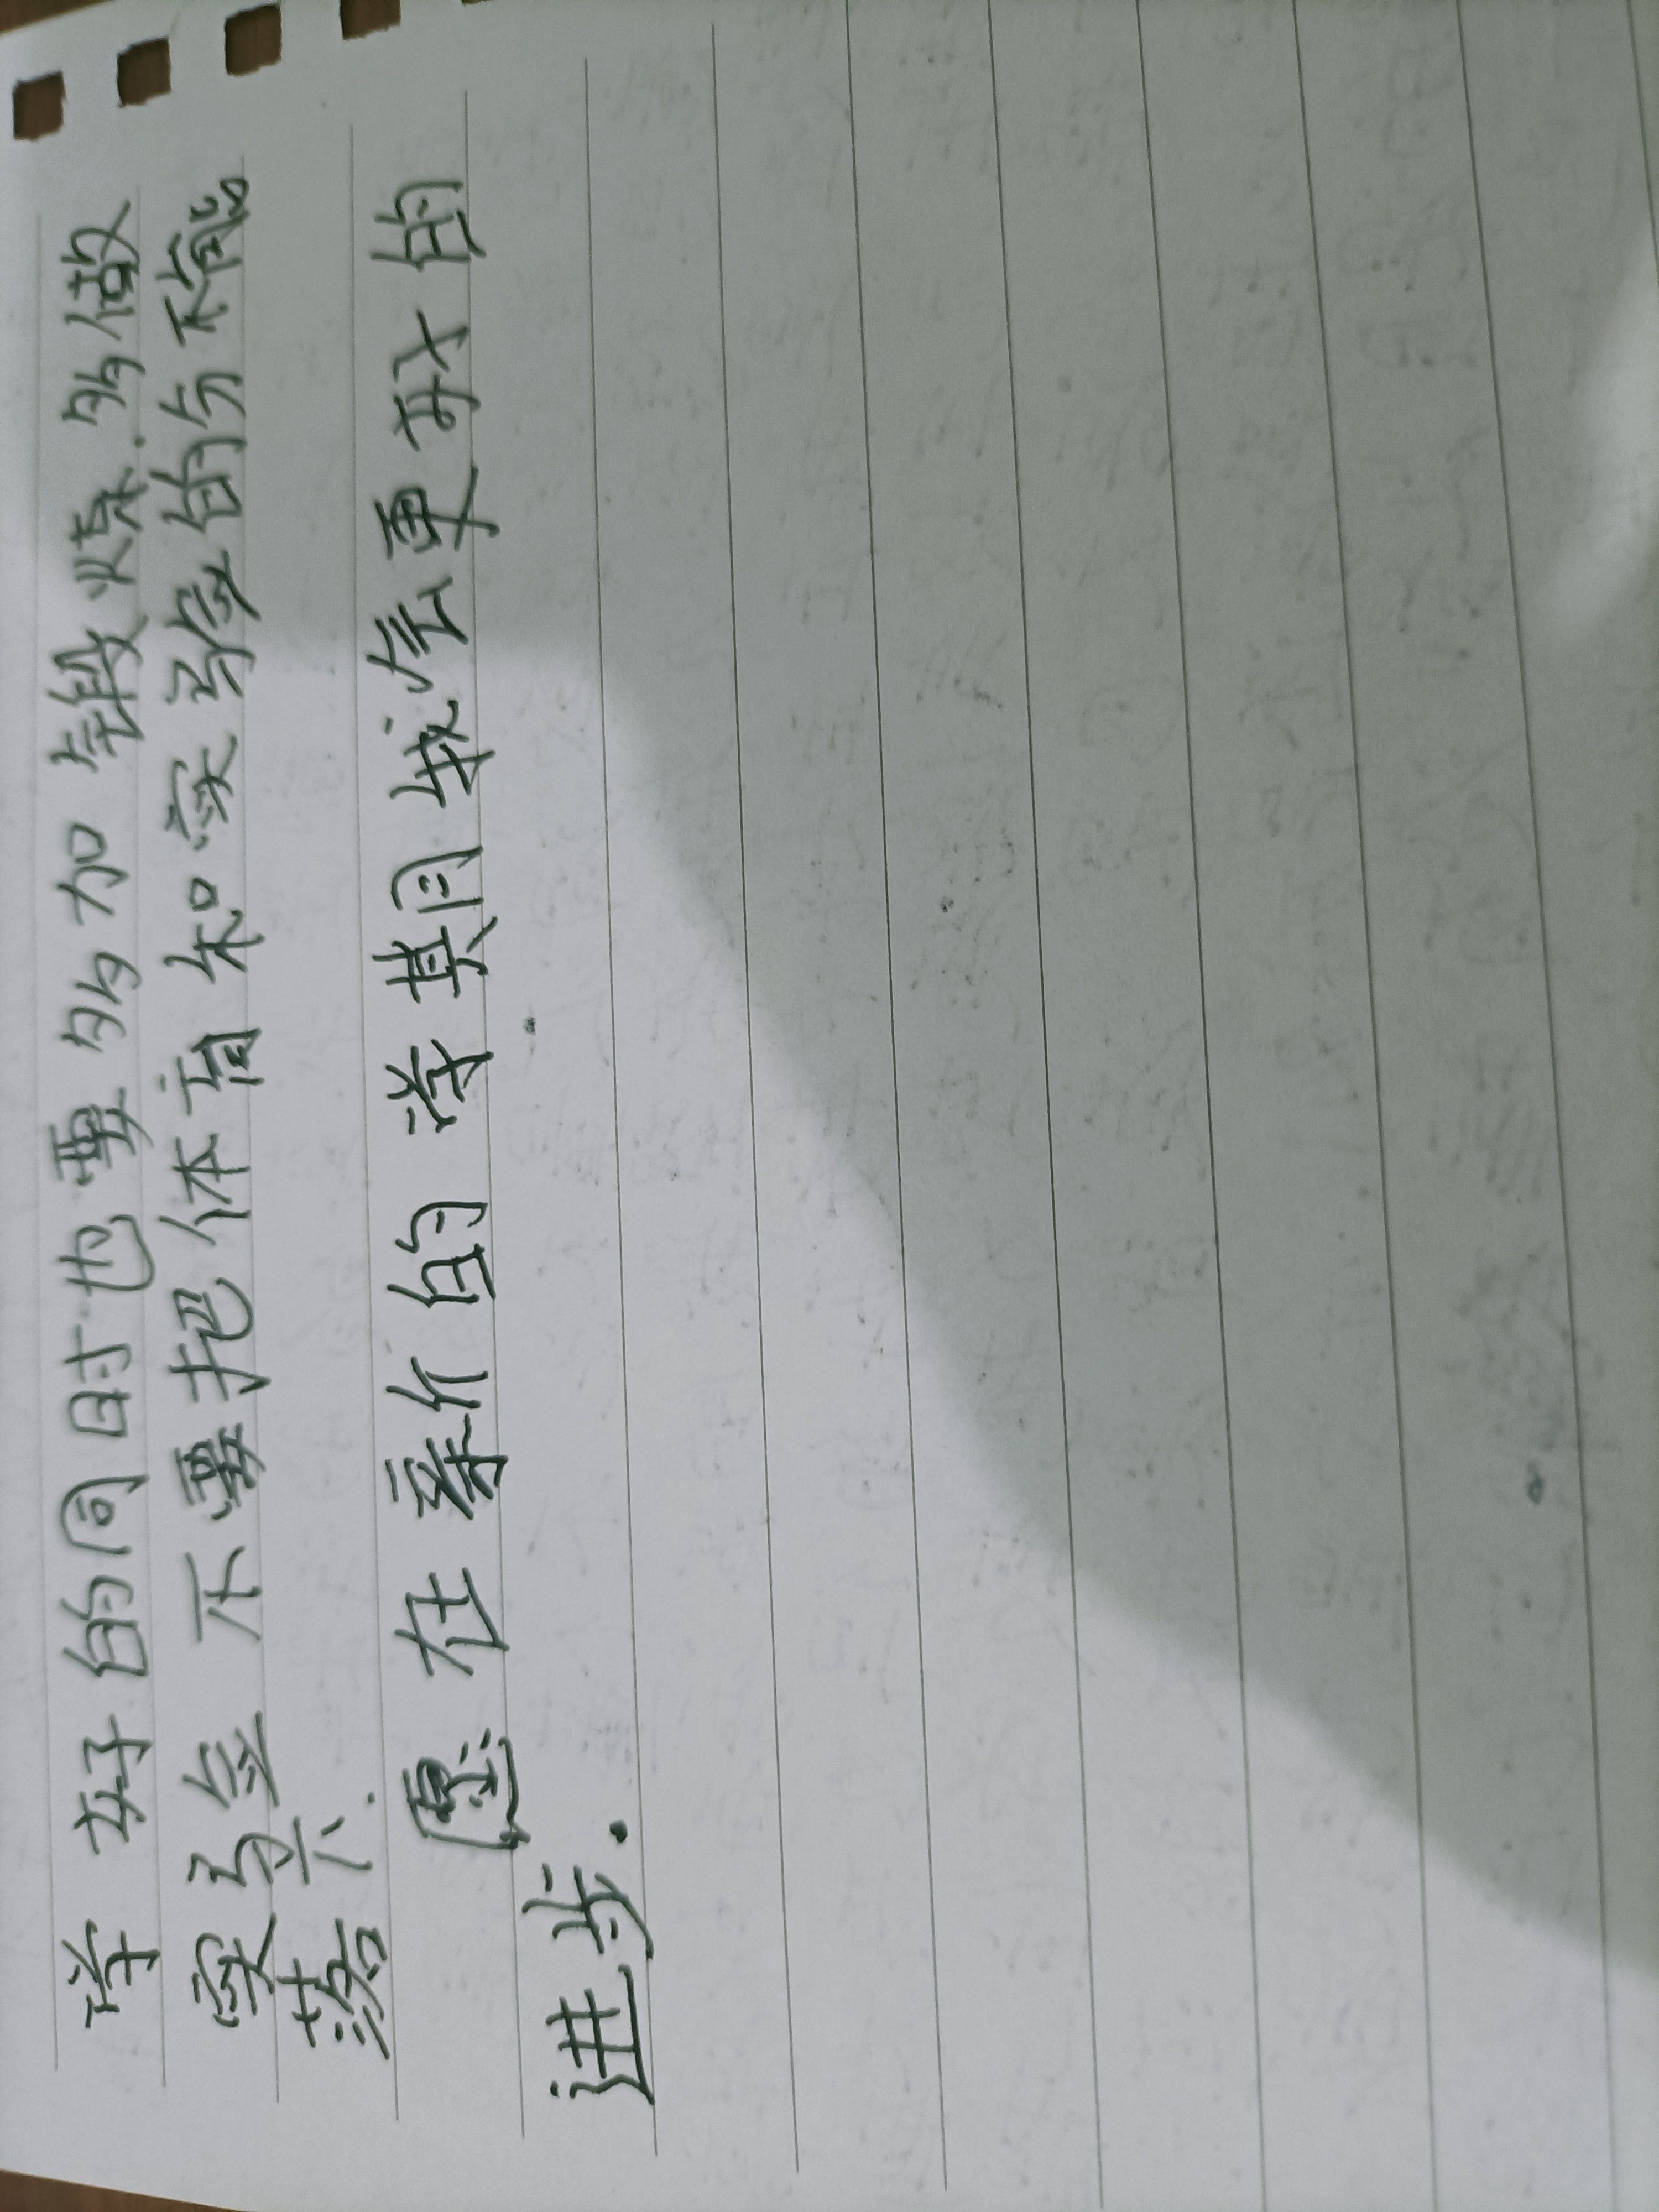 学好的同时也要多加锻炼.多做
实验不要把体育和实验的分不能
落下.
愿在新的学期间我会更好的
进步.